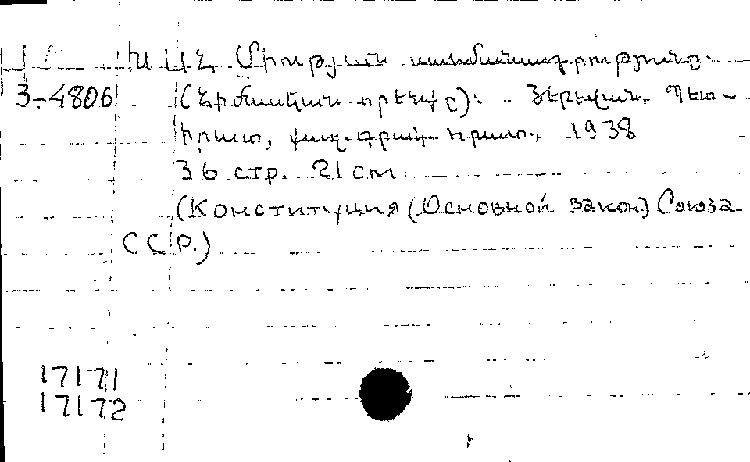 Ս Ս Հ Միության սահմանադրությունը.
3-4806 (Հիմնական օրենքը): Երևան. Պետ-
հրատ, քաղ. գրակ. հրատ., 1938
36 стр. 21 cm
(Конституция (Основной закон) Союза
С С Р.)
17171
17172